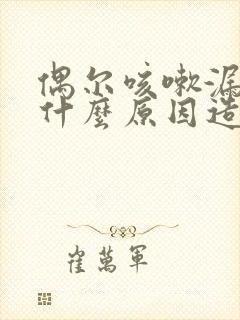 偶尔咳嗽漏
什麼原因造
崔萬軍